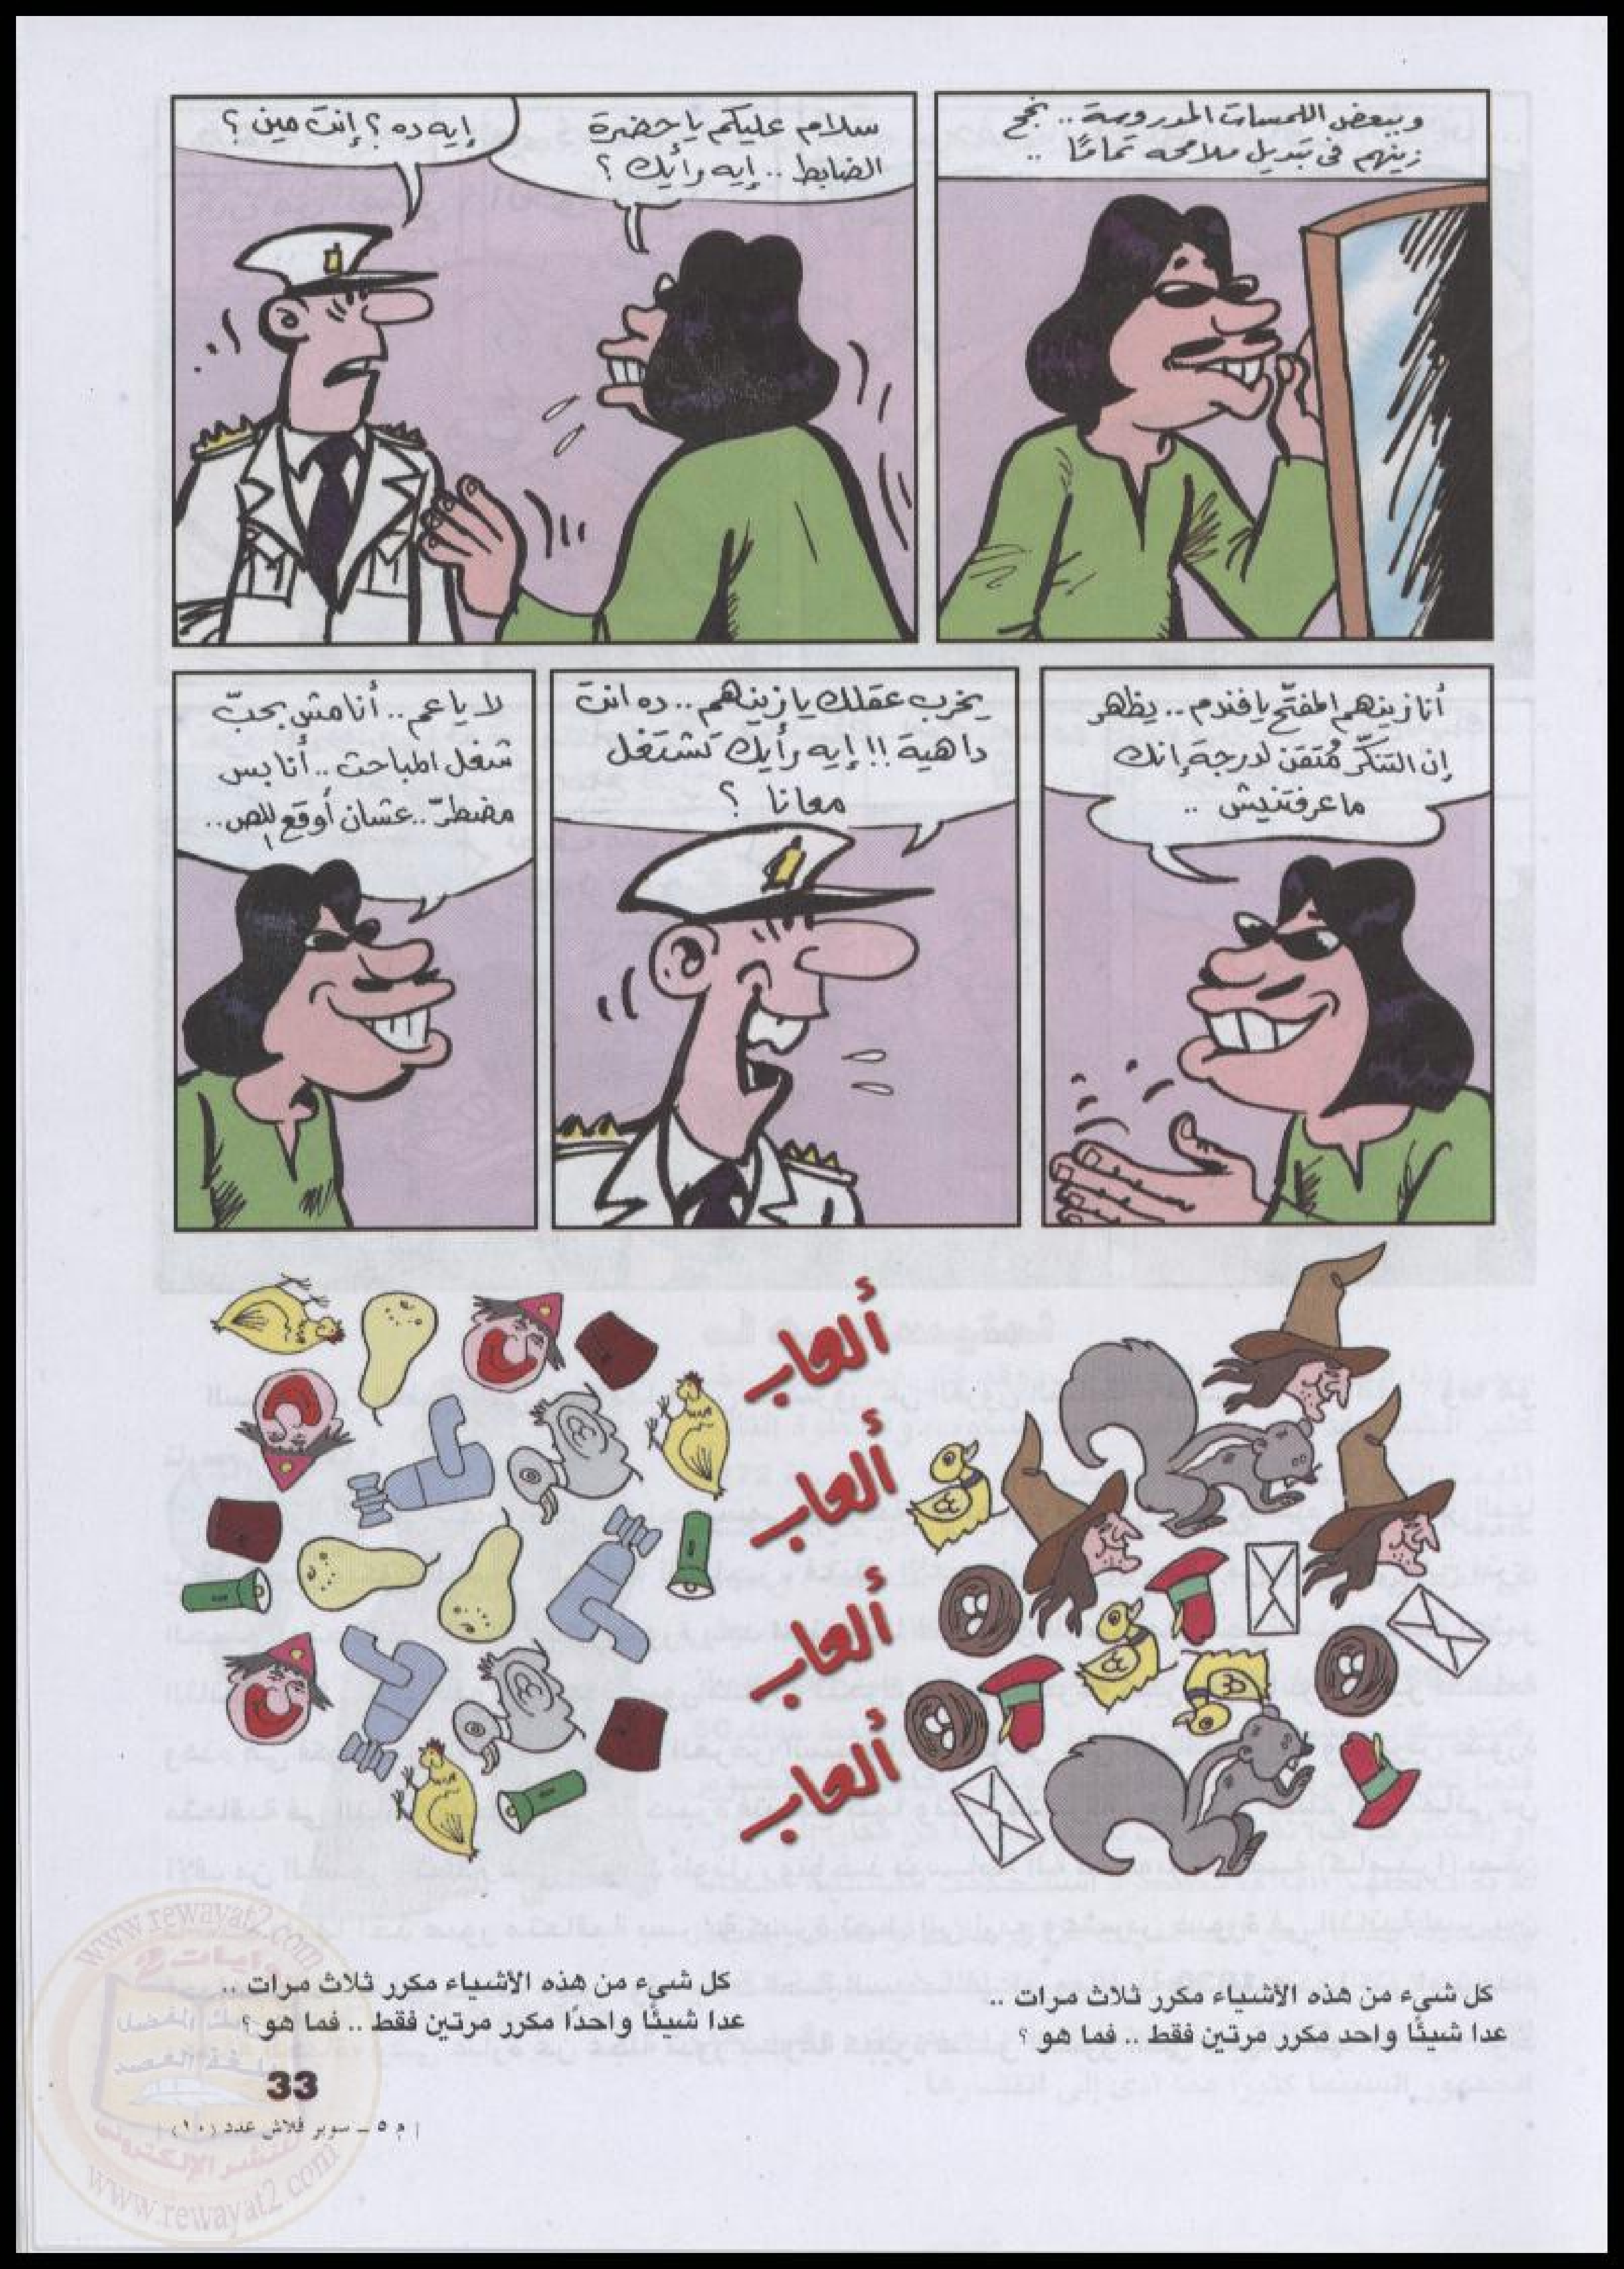 وببعض اللمسات المدروسة .. نجح
زينهم فى تبديل ملامحه تمامًا ..
سلام عليكم يا حضرة
الضابط .. إيه رأيك ؟
إيه ده ؟ إنت مين ؟
أنا زينهم المفتّح يا فندم .. يظهر
إن التنكّر مُتقن لدرجة إنك
ما عرفتنيش ..
يخرب عقلك يا زينهم .. ده انت
داهية !! إيه رأيك تشتغل
معانا ؟
لا يا عم .. أنا مش بحبّ
شغل المباحث .. أنا بس
مضطرّ .. عشان أوقع اللص ..
ألعاب
ألعاب
ألعاب
ألعاب
كل شىء من هذه الأشياء مكرر ثلاث مرات ..
عدا شيئًا واحد مكرر مرتين فقط .. فما هو ؟
كل شىء من هذه الأشياء مكرر ثلاث مرات ..
عدا شيئًا واحدًا مكرر مرتين فقط .. فما هو ؟
33
[ م ٥ ــ سوبر فلاش عدد (١٠) ]
www.rewayat2.com
روايات 2
www.rewayat2.com